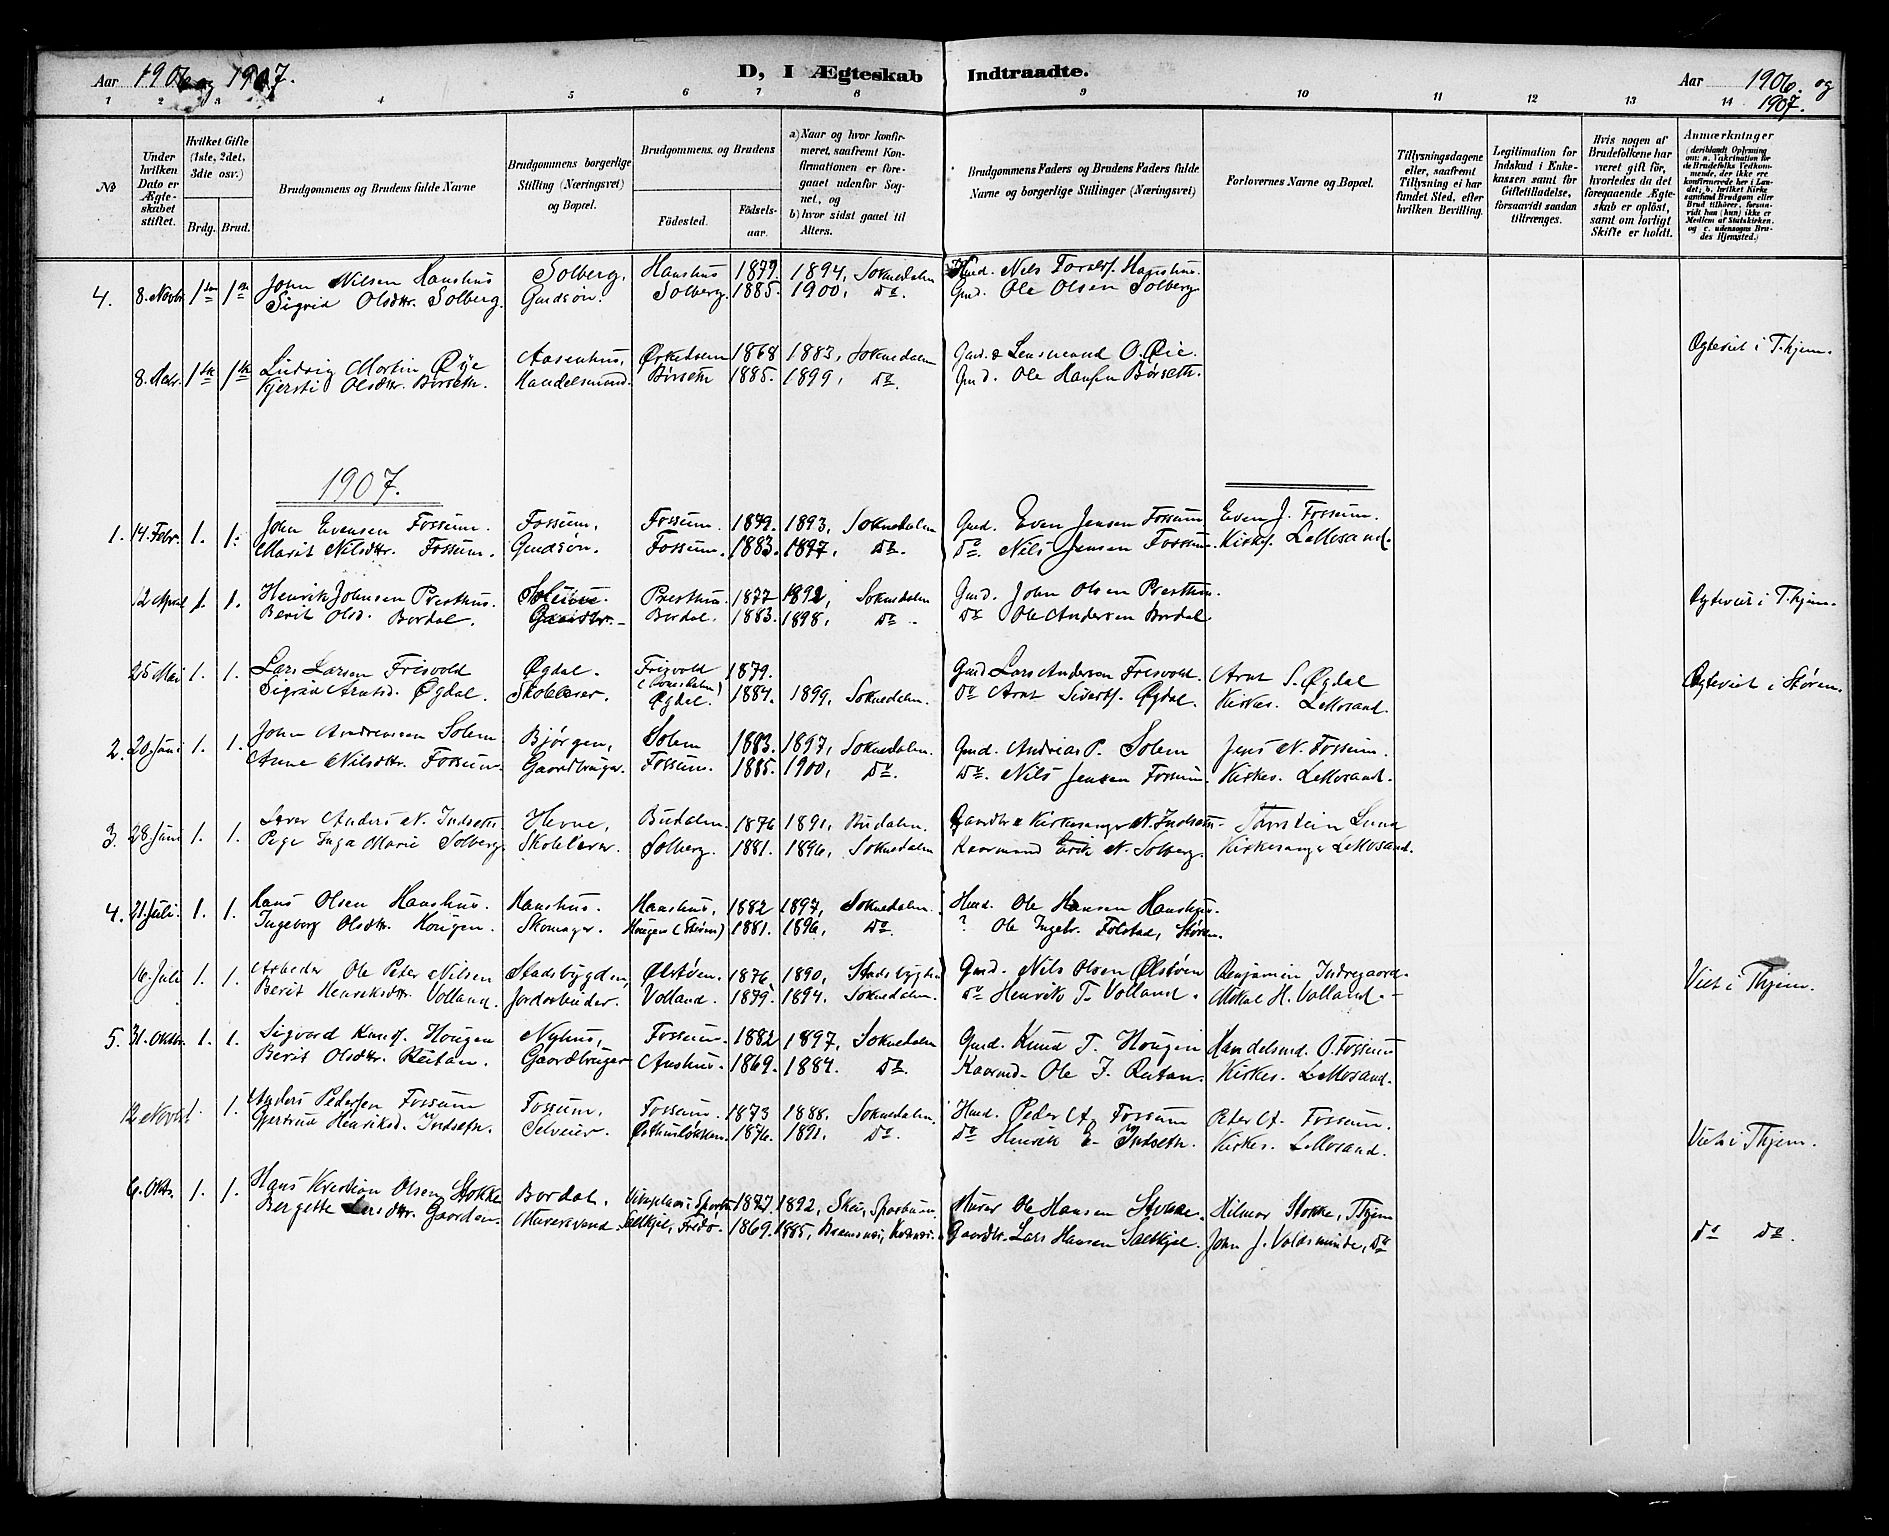 Aar 1906 og 1907.
D, I Ægteskab Indtraadte.
Aar 1906 og 1907.
1 2 3 4 5 6 7 8 9 10 11 12 13 14
№
Under hvilken Dato er Ægteskabet stiftet.
Hvilket Gifte (1ste, 2det, 3die osv.)
Brdg. Brud.
Brudgommens og Brudens fulde Navne
Brudgommens borgerlige Stilling (Næringsvei) og Bopæl.
Brudgommens og Brudens
Fødested. Fødselsaar.
a) Naar og hvor konfirmeret, saafremt Konfirmationen er foregaaet udenfor Sognet, og
b) hvor sidst gaaet til Alters.
Brudgommens Faders og Brudens Faders fulde Navne og borgerlige Stillinger (Næringsvei)
Forlovernes Navne og Bopæl.
Tillysningsdagene eller, saafremt Tillysning ei har fundet Sted, efter hvilken Bevilling.
Legitimation for Indskud i Enkekassen samt for Giftetilladelse, forsaavidt saadan tiltrænges.
Hvis nogen af Brudefolkene har været gift før, hvorledes da det foregaaende Ægteskab er opløst, samt om lovligt Skifte er holdt.
Anmærkninger (deriblandt Oplysning om: a. Vakcination for de Brudefolks Vedkommende, der ikke ere konfirmerede her i Landet; b. hvilket Kirkesamfund Brudgom eller Brud tilhører, forsaavidt han (hun) ikke er Medlem af Statskirken, og c. udensogns Brudes Hjemsted.)
4. 8. Novbr. 1ste 1ste John Nilsen Haushus Solberg, Haushus 1879. 1894, Soknedalen Nils Haushus.
Sigrid Olsdtr. Solberg. Gmdsøn. Solberg. 1885. 1900, Do. Gmd. Ole Olsen Solberg
8. 1ste 1ste Ludvig Martin Øye Aasenhus, Ørkedalen 1868 1883, Soknedalen Gmd. & Lensmand O. Øie. Ogteviet i T.hjem.
Kjersti Olsdtr. Børseth. Handelsmand. Børseth 1885. 1899, Do. Gmd. Ole Hansen Børseth.
1907.
1. 14 Febr. 1. 1. John Evensen Fossum. Fossum, Fossum. 1879. 1893, Soknedalen Gmd. Even Jensen Fossum Even J. Fossum.
Marit Nilsdtr. Fossum. Gmdsøn. Fossum. 1883. 1897, Do. Do. Nils Jensen Fossum. Kirkes. LeMosand.
12 April 1. 1. Henrik Johnsen Presthus. Presthus. 1877 1892, Soknedalen Gmd. John Olsen Presthus. Ogteviet i T.hjem.
Berit Olsd. Bordal. Bordal. 1883. 1898. Do. Do Ole Andersen Bordal
25 Mai 1. 1. Lars Larsen Frisvold Øgdal. Frisvold 1879. Gmd. Lars Andersen Frisvold. Arnt S. Øgdal Ogteviet i Støren.
Sigrid Arntsd. Øgdal. Skolelærer. Øgdal. 1884. 1899, Soknedalen. Do Arnt Siverts. Øgdal. Kirkes. LeMosand.
2. 20. Juni 1. 1. John Andreassen Solem Bjørgen, Solem 1883. 1897, Soknedalen. Gmd. Andrias P. Solem Jens N. Fossum.
Anne Nilsdtr. Fossum. Gaardbruger. Fossum. 1885. 1900, Do. Do. Nils Jensen Fossum. Kirkes. LeMosand.
3. 28. Juni 1. 1. Lærer Anders N. Indseth Hevne, Budalen. 1876 1891, Budalen. Gaardbr & Kirkesanger N. Indseth. Thorstein Lund
Pige Inga Marie Solberg. Skolelærer. Solberg. 1881. 1896, Soknedalen Kaarmand Erik N. Solberg. Kirkesanger LeMosand.
4. 21. Juli. 1. 1. Hans Olsen Haushus. Haushus. Haushus, 1882 1897, Soknedalen. Hmd. Ole Hansen Haushus.
Ingeborg Olsdtr. Hougen. Skomager. Hougen (Støren) 1881. 1896, Do. ? Ole Ingebr. Folstad, Støren.
16. Juli 1. 1. Arbeder Ole Peter Nilsen Stadsbygden, Ølstøen. 1876. 1890, Stadsbygden Gmd. Nils Olsen Ølstøen Benjamin Indregaard. Viet i T.hjem.
Berit Henriksdtr. Volland. Jordarbeider. Volland. 1879. 1894. Soknedalen. Do Henrik T. Volland. Mikal H. Volland.
5. 31. Oktbr. 1. 1. Sigvard Knuds. Hougen Nyhus, Fossum. 1882 1897, Soknedalen Gmd. Knud T. Hougen Handelsmd. O. Fossum
Berit Olsdtr. Reitan. Gaardbruger Aushus. 1869. 1884. Do. Kaarmd. Ole J. Reitan. Kirkes. LeMosand.
12 Novbr. 1. 1. Anders Pedersen Fossum Fossum, Fossum. 1873 1888. Soknedalen. Hmd. Peder A. Fossum Peter A. Fossum.
Gjertrud Henriksd. Indseth. Selveier. 1876. 1891. Do. Do Henrik E. Indseth. Kirkes. LeMosand. Viet i T.hjem.
6. Oktb. 1. 1. Hans Kristian Olsen Stokke Bordal, 1877. 1892, Skei, Sparbuen. Murer Ole Hansen Stokke Hilmar Stokke, T.hjem
Bergette Larsdtr. Gaarden. Murersvend. 1869. 1885, Bremsnæs, Kr.sund. Gaardbr. Lars Hansen Sætkjel. John J. Voldsminde, Do do Do.